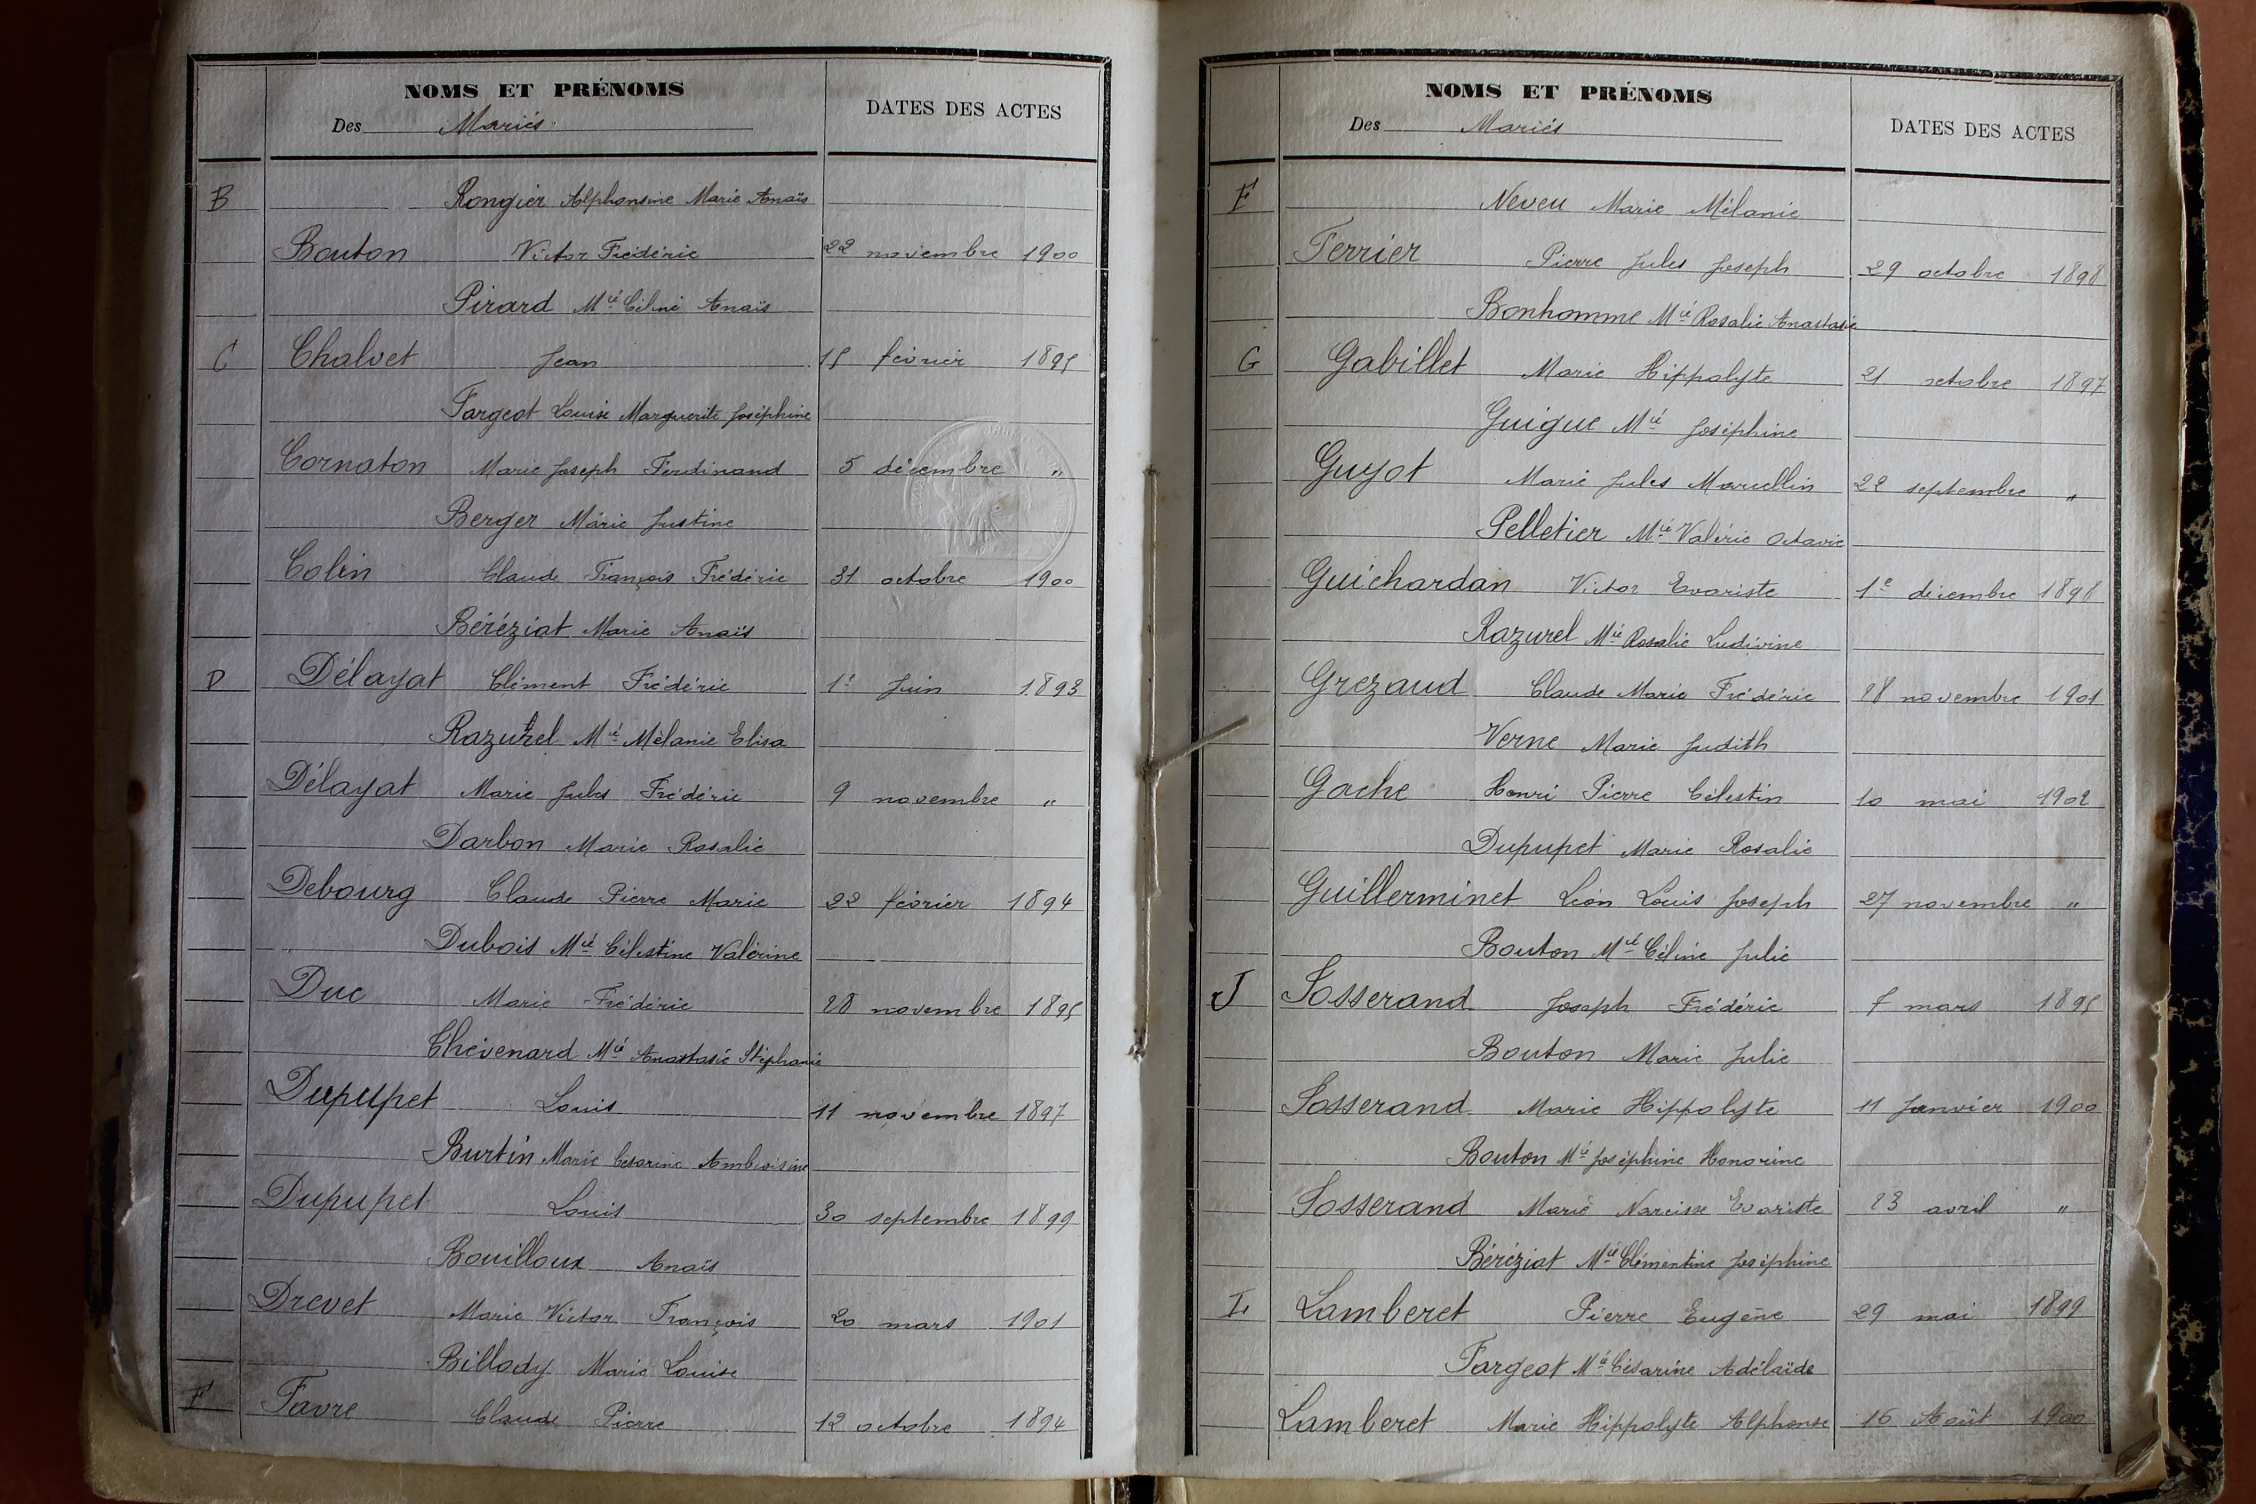 NOMS ET PRÉNOMS
Des Mariés
DATES DES ACTES
B Rongier Alphonsine Marie Anaïs
Bouton Victor Frédéric 22 novembre 1900
Pirard Mie Céline Anaïs
C Chalvet Jean 15 février 1895
Fargeot Louise Marguerite Joséphine
Cornaton Marie Joseph Ferdinand 5 décembre "
Berger Marie Justine
Colin Claude François Frédéric 31 octobre 1900
Béréziat Marie Anaïs
D Délayat Clément Frédéric 1r Juin 1893
Razurel Mie Mélanie Elisa
Délayat Marie Jules Frédéric 9 novembre "
Darbon Marie Rosalie
Debourg Claude Pierre Marie 22 février 1894
Dubois Mie Célestine Valérine
Duc Marie Frédéric 28 novembre 1895
Chevenard Mie Anastasie Stéphanie
Dupupet Louis 11 novembre 1897
Burtin Marie Césarine Ambroisine
Dupupet Louis 30 septembre 1899
Bouilloux Anaïs
Drevet Marie Victor François 20 mars 1901
Billody Marie Louise
F Favre Claude Pierre 12 octobre 1894
NOMS ET PRÉNOMS
Des Mariés
DATES DES ACTES
F Neveu Marie Mélanie
Ferrier Pierre Jules Joseph 29 octobre 1898
Bonhomme Mie Rosalie Anastasie
G Gabillet Marie Hippolyte 21 octobre 1897
Guigue Mie Joséphine
Guyot Marie Jules Marcellin 22 septembre "
Pelletier Mie Valérie Octavie
Guichardan Victor Evariste 1e décembre 1898
Razurel Mie Rosalie Ludivine
Grezaud Claude Marie Frédéric 28 novembre 1901
Verne Marie Judith
Gache Henri Pierre Célestin 10 mai 1902
Dupupet Marie Rosalie
Guillerminet Léon Louis Joseph 27 novembre "
Bouton Mie Céline Julie
J Josserand Joseph Frédéric 7 mars 1895
Bouton Marie Julie
Josserand Marie Hippolyte 11 Janvier 1900
Bouton Mie Joséphine Honorine
Josserand Marie Narcisse Evariste 23 avril "
Béréziat Mie Clémentine Joséphine
L Lamberet Pierre Eugène 29 mai 1899
Fargeot Mie Césarine Adélaïde
Lamberet Marie Hippolyte Alphonse 16 Août 1900